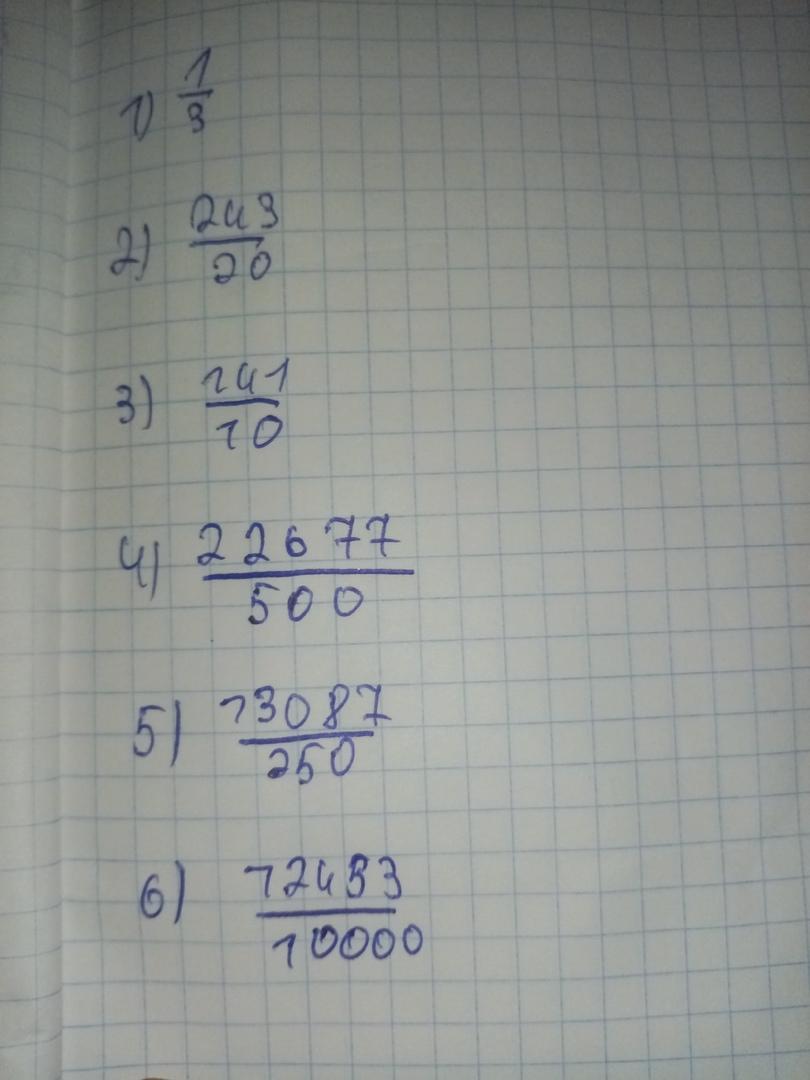 1) 1/3
2) 243/20
3) 141/10
4) 22677/500
5) 13087/250
6) 12493/10000